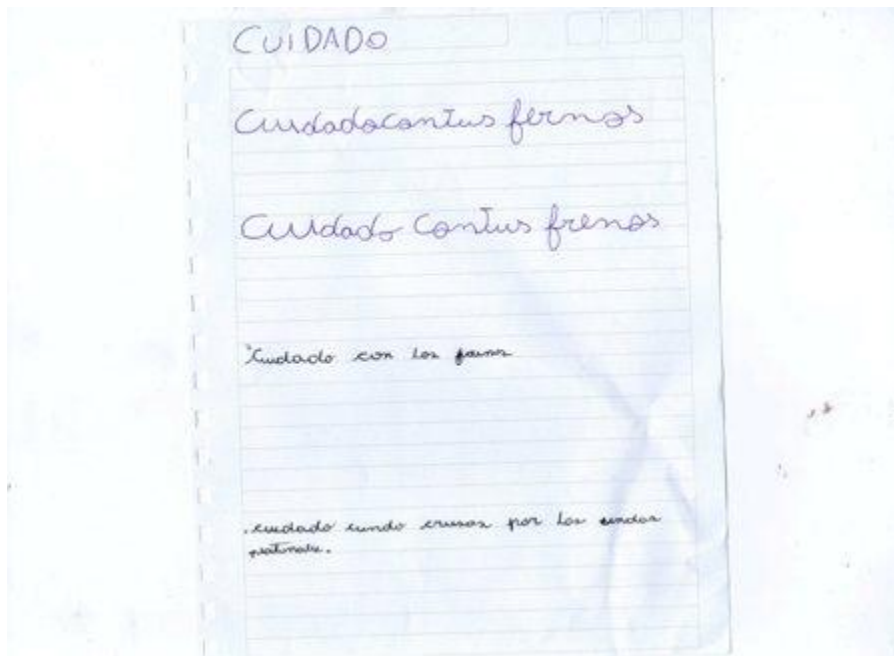 CUiDADO
Cuidadocontus fernos
Cuidado Contus frenos
Cuidado con los
.cuidado cundo crusas por los